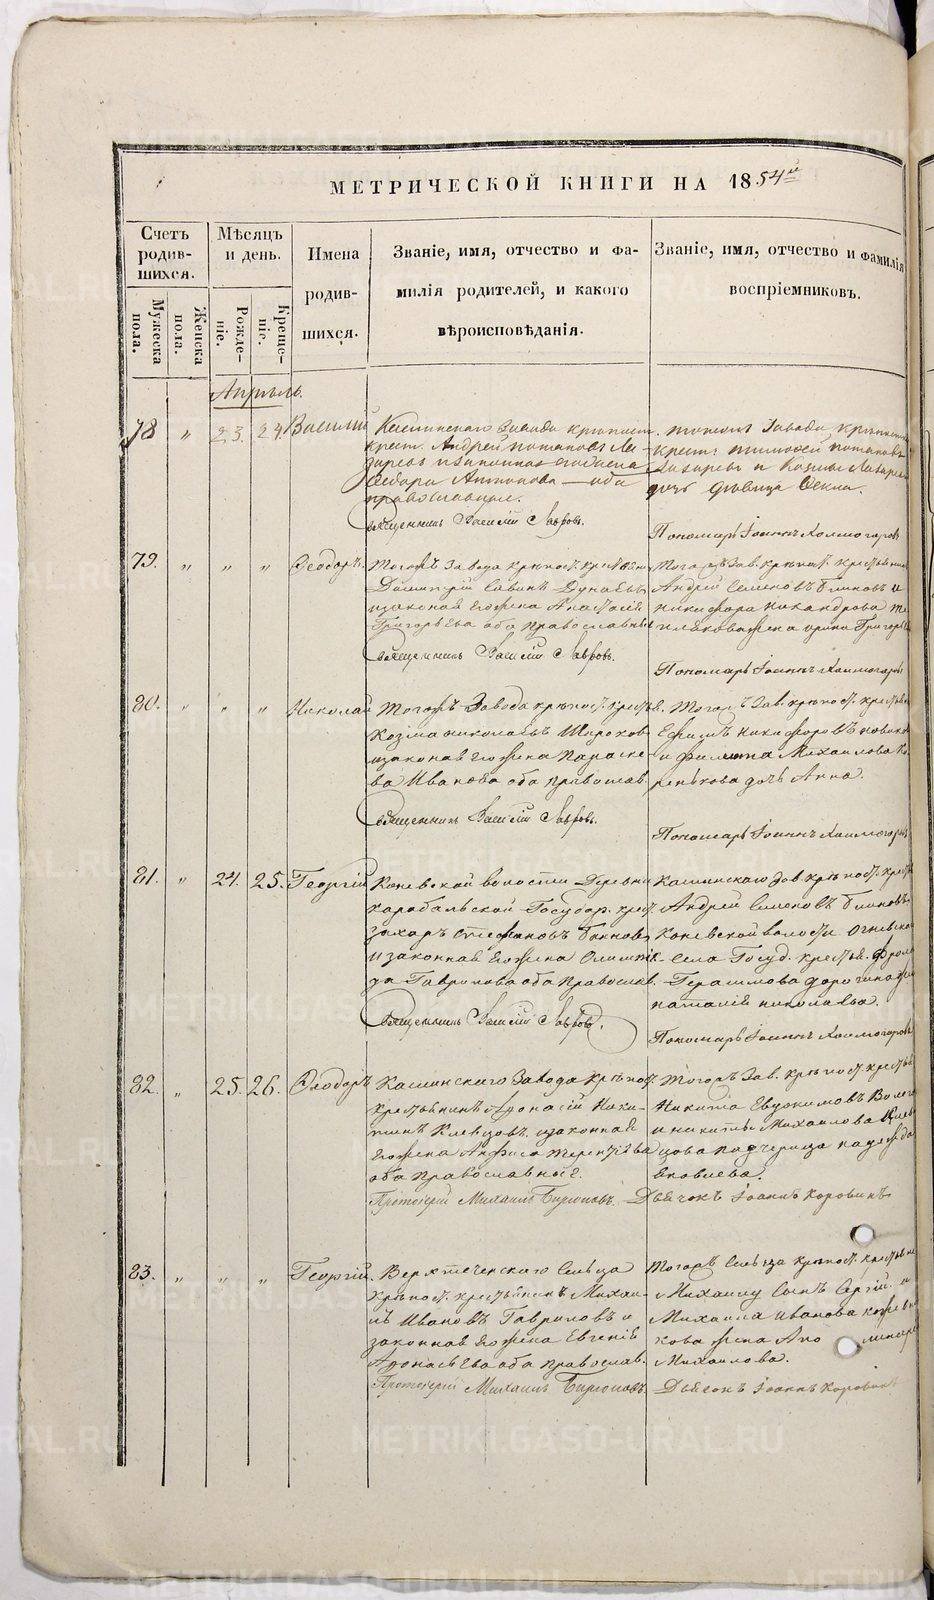 МЕТРИЧЕСКОЙ КНИГИ НА 1854й
Счетъ родив-шихся.
Мужеска пола.
Женска пола.
Мѣсяцъ и день.
Рожде-ніе.
Креще-ніе.
Имена родив-шихся.
Званіе, имя, отчество и фа-
милія родителей, и какого
вѣроисповѣданія.
Званіе, имя, отчество и фамилія
воспріемниковъ.
Апрѣль.
78 „ 23. 24. Василій
Каслинскаго Завода крѣпост.
крест. Андрей Потаповъ Ла-
заревъ и законная его жена
Антонова оба
православные.
Священникъ Василій Лавровъ.
тогожъ Завода крѣпост
крест. Тимофей Потаповъ
Лазаревъ и Козмы Лазарева
дочь дѣвица Фекла.
Пономарь Іоаннъ Холмогоровъ
79. „ „ „ Ѳеодоръ.
Тогожъ Завода крѣпост. крестьян
Димитрій Савинъ Дунаевъ
и законная его жена Анастасія
Григорьева оба православные
Священникъ Василій Лавровъ.
Тогожъ Зав. крѣпост. крестьянинъ
Андрей Семеновъ Блиновъ и
Никифора Никандрова
жена Ирина Григорьева
Пономарь Іоаннъ Холмогоровъ
80. „ „ „ Николай
Тогожъ Завода крѣпост. крестьян.
Козма Николаевъ Широков
и законная его жена Параске-
ва Иванова оба православ.
Священникъ Василій Лавровъ.
Тогожъ Зав. крѣпост. крестьян
Ефимъ Никифоровъ
и Филиппа Михайлова
дочь Анна.
Пономарь Іоаннъ Холмогоровъ
81. „ 24. 25. Георгій
Коневской волости Деревни
Карабольской Государ. крест.
Захаръ Стефановъ Блиновъ
и законная его жена Олимпіа-
да Гаврилова оба православ.
Священникъ Василій Лавровъ.
Каслинскаго Зав. крѣпост. крестьян
Андрей Семеновъ Блиновъ
Коневской волости Огневска
Села Госуд. крестья. Фрола
Герасимова Дорогина жена
Наталія Николаева.
Пономарь Іоаннъ Холмогоровъ
82. „ 25. 26. Ѳеодоръ
Каслинскаго Завода крѣпост.
крестьянинъ Афонасій Ники-
тинъ Клевцовъ и законная
его жена Анфиса Терентьева
оба православные.
Протоіерей Михаилъ Бирюковъ.
Тогожъ Зав. крѣпост. крестьян
Никита Евдокимовъ
и Никиты Михайлова Клев-
цова падчерица Надежда
Яковлева.
Дьячокъ Іоаннъ Коровинъ
83. „ „ „ Георгій.
Верхтеченскаго Сельца
крѣпост. крестьянинъ Михаи-
лъ Ивановъ Гавриловъ и
законная его жена Евгенія
Афонасьева оба православ.
Протоіерей Михаилъ Бирюковъ.
Тогожъ Сельца крѣпост. крестьян
Михаилу Сынъ Сергій и
Михаила Иванова
кова жена Аполинарія
Михайлова.
Дьячокъ Іоаннъ Коровинъ
METRIKI.GASO-URAL.RU